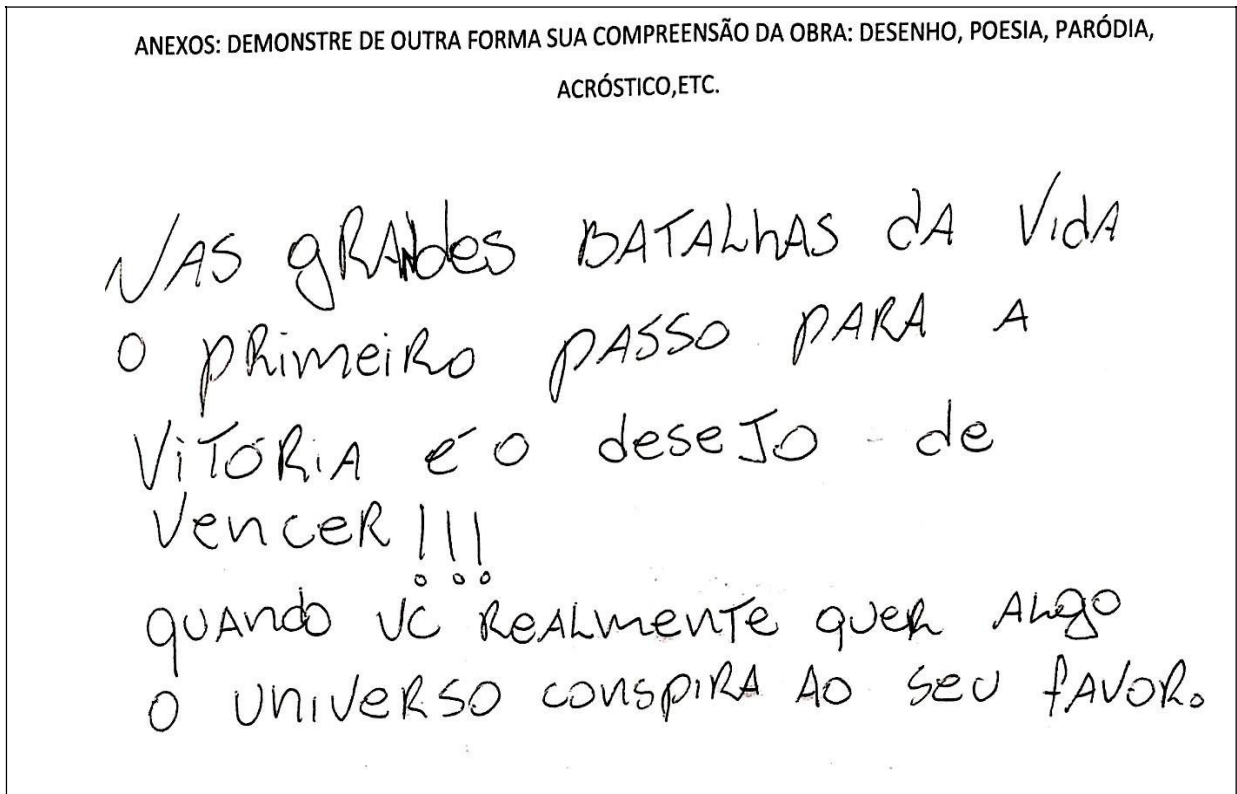 ANEXOS: DEMONSTRE DE OUTRA FORMA SUA COMPREENSÃO DA OBRA: DESENHO, POESIA, PARÓDIA,
ACRÓSTICO,ETC.
NAS gRANdes BATALhAS dA VidA
O pRimeiRo pASSO pARA A
ViTÓRiA é o deseJo de
VenceR!!!
quANdo vc ReALmenTe queR ALgo
O UniVeRSO conspiRA AO seu fAVOR.